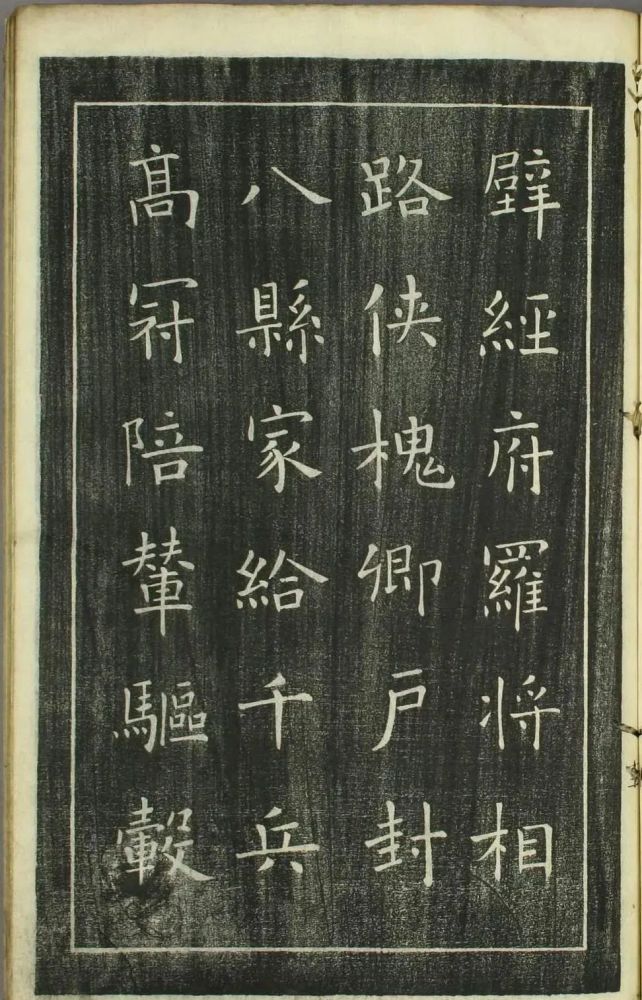 壁經府羅将相
路侠槐卿户封
八縣家給千兵
髙冠陪輦驅轂